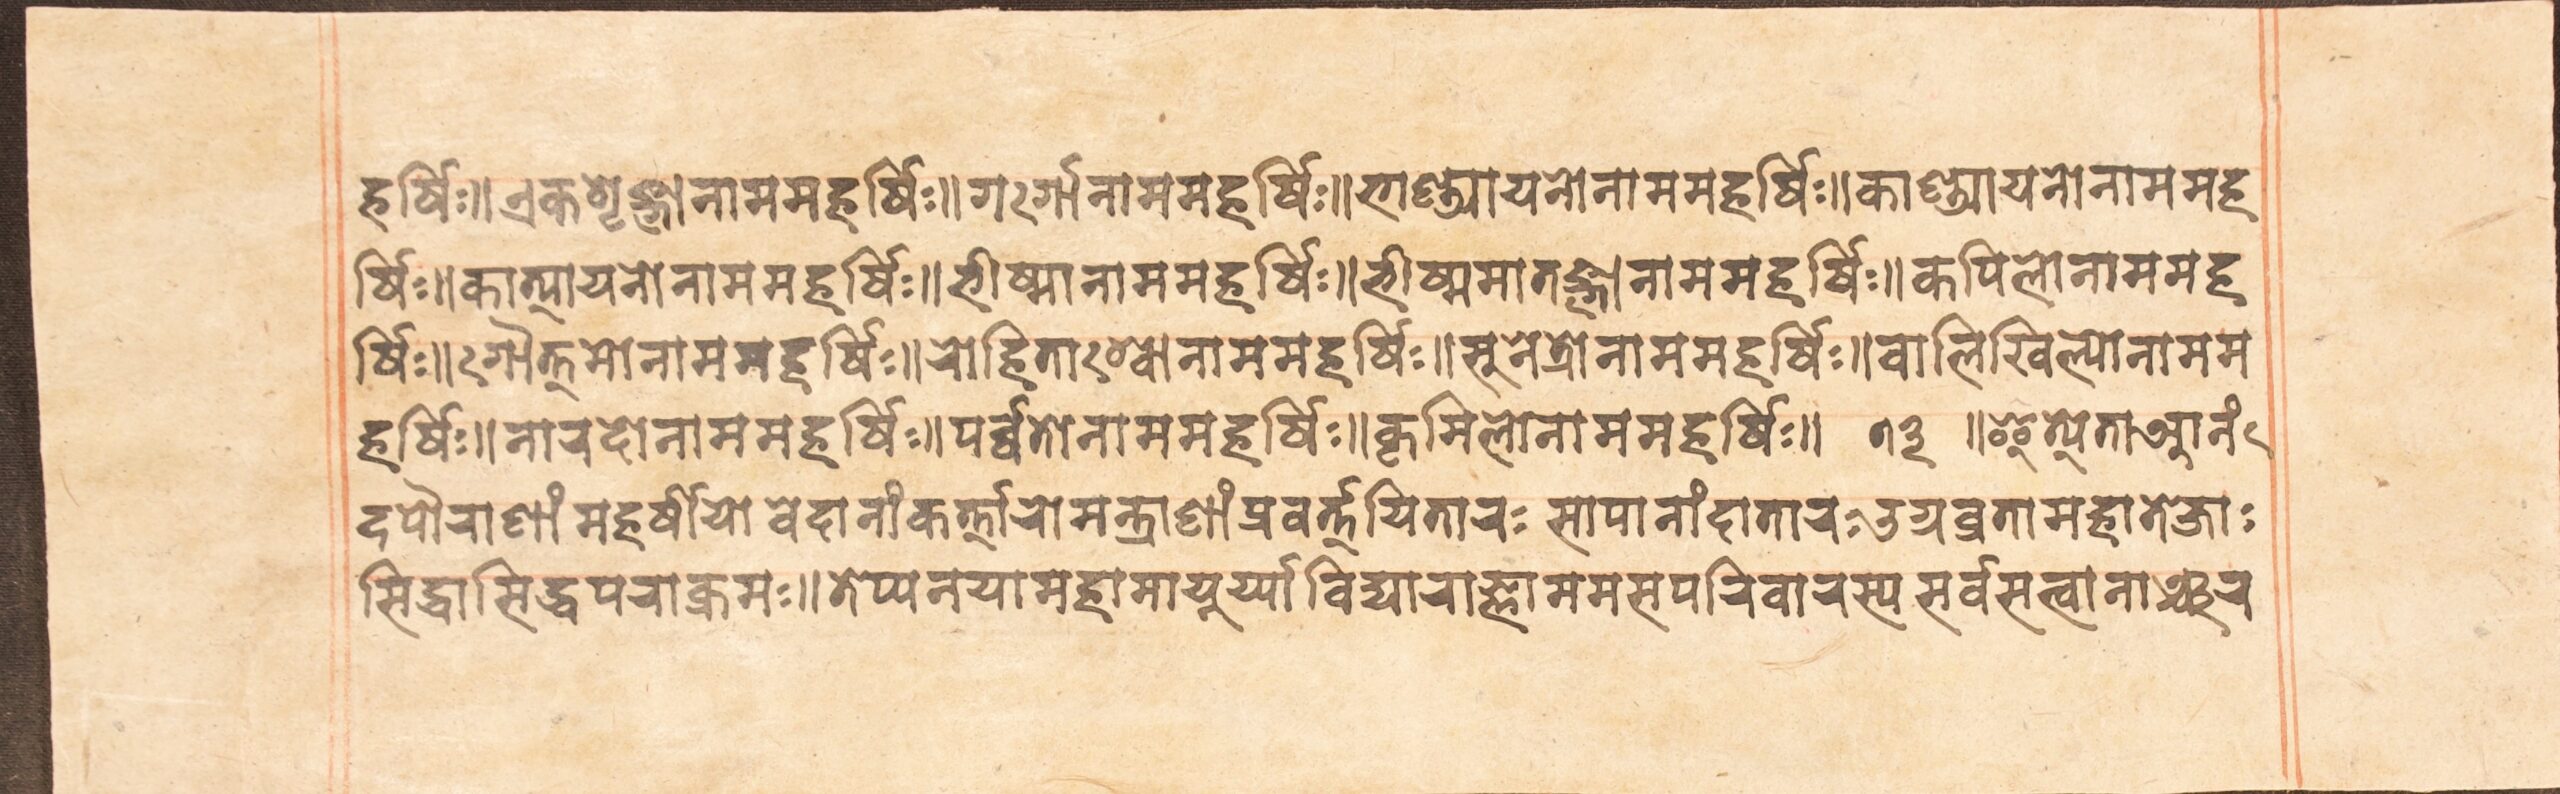 हर्षिः॥एकशृङ्गोनाममहर्षिः॥गर्गोनाममहर्षिः॥भाण्ड्यायनोनाममहर्षिः॥काण्ड्यायनोनाममह
र्षिः॥कात्यायनोनाममहर्षिः॥भीष्मोनाममहर्षिः॥भीष्ममातङ्गोनाममहर्षिः॥कपिलोनाममह
र्षिः॥गौत्तमोनाममहर्षिः॥रोहिताश्वोनाममहर्षिः॥सुनेत्रोनाममहर्षिः॥वालिखिल्योनामम
हर्षिः॥नारदोनाममहर्षिः॥पर्व्वतोनाममहर्षिः॥कृमिलोनाममहर्षिः॥ १३ ॥इत्येताआनं
दपौराणां महर्षीयो वेदानांकर्त्तारोमन्त्राणांप्रवर्त्तयितारः सापानांदातारःउग्रव्रतामहातेजाः
सिद्धासिद्धपराक्रमः॥तेप्यनयामहामायुर्य्याविद्याराज्ञाममसपरिवारस्यसर्वसत्वानाञ्चर